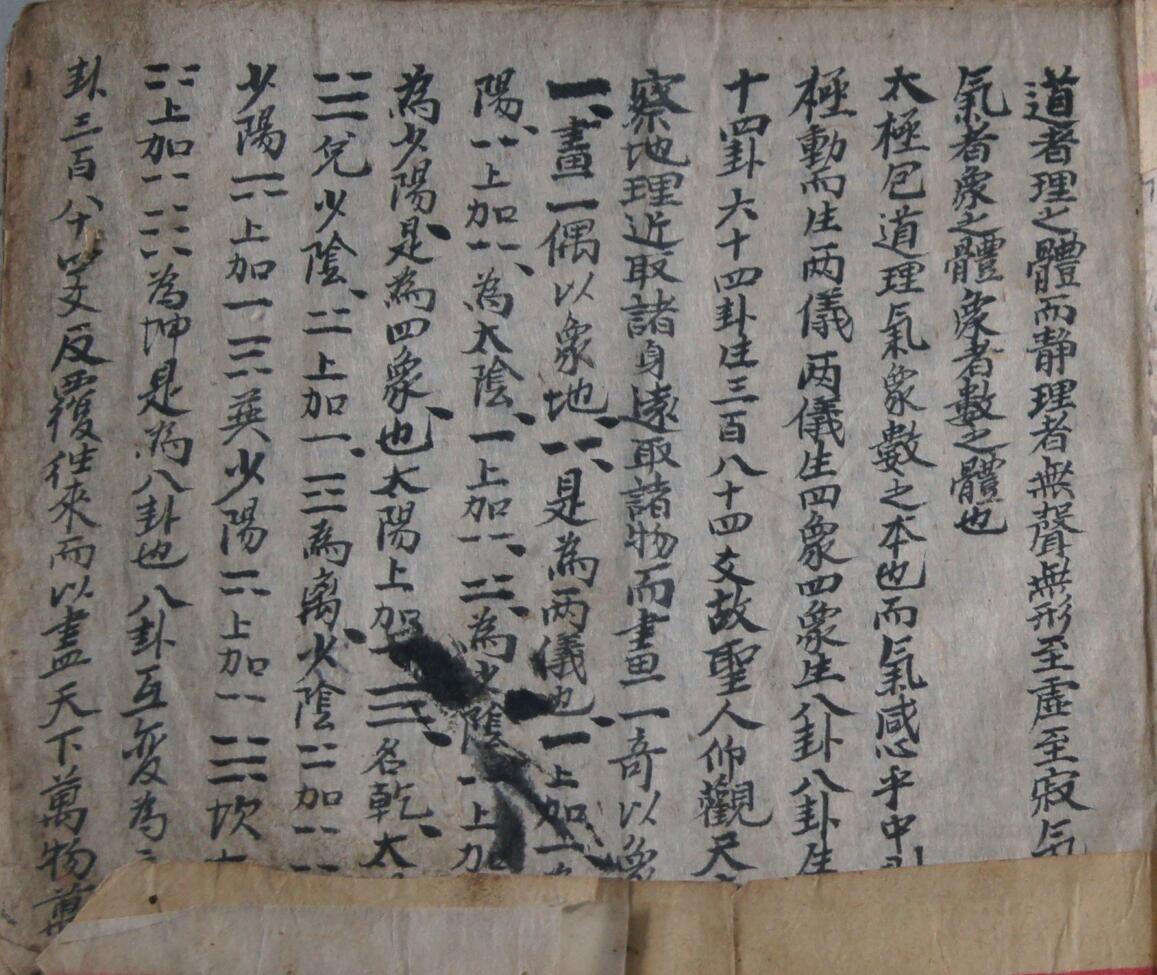 道者理之體而静理者無聲無形至虛至寂氣
氣者象之體象者數之體也
太極包道理氣象數之本也而氣咸乎中
極動而生两儀两儀生四象四象生八卦八卦生
十四卦六十四卦生三百八十四爻故聖人仰觀天
察地理近取諸身遠取諸物而畫一奇以象
一、畫一偶以象地、⚋、是為两儀也、一上加一
陽、⚋上加⚋、為太陰、一上加⚋、⚍、為少陰⚋上加
為少陽是為四象也、太陽上加一☰、名乾、太
☱兌少陰、⚍上加一、☲為离、少陰⚍加⚋
少陽⚎上加一☴巽少陽⚎上加⚋☵坎
⚏上加⚋☷為坤是為八卦也八卦互变為
卦三百八十四爻反覆往來而以盡天下萬物萬